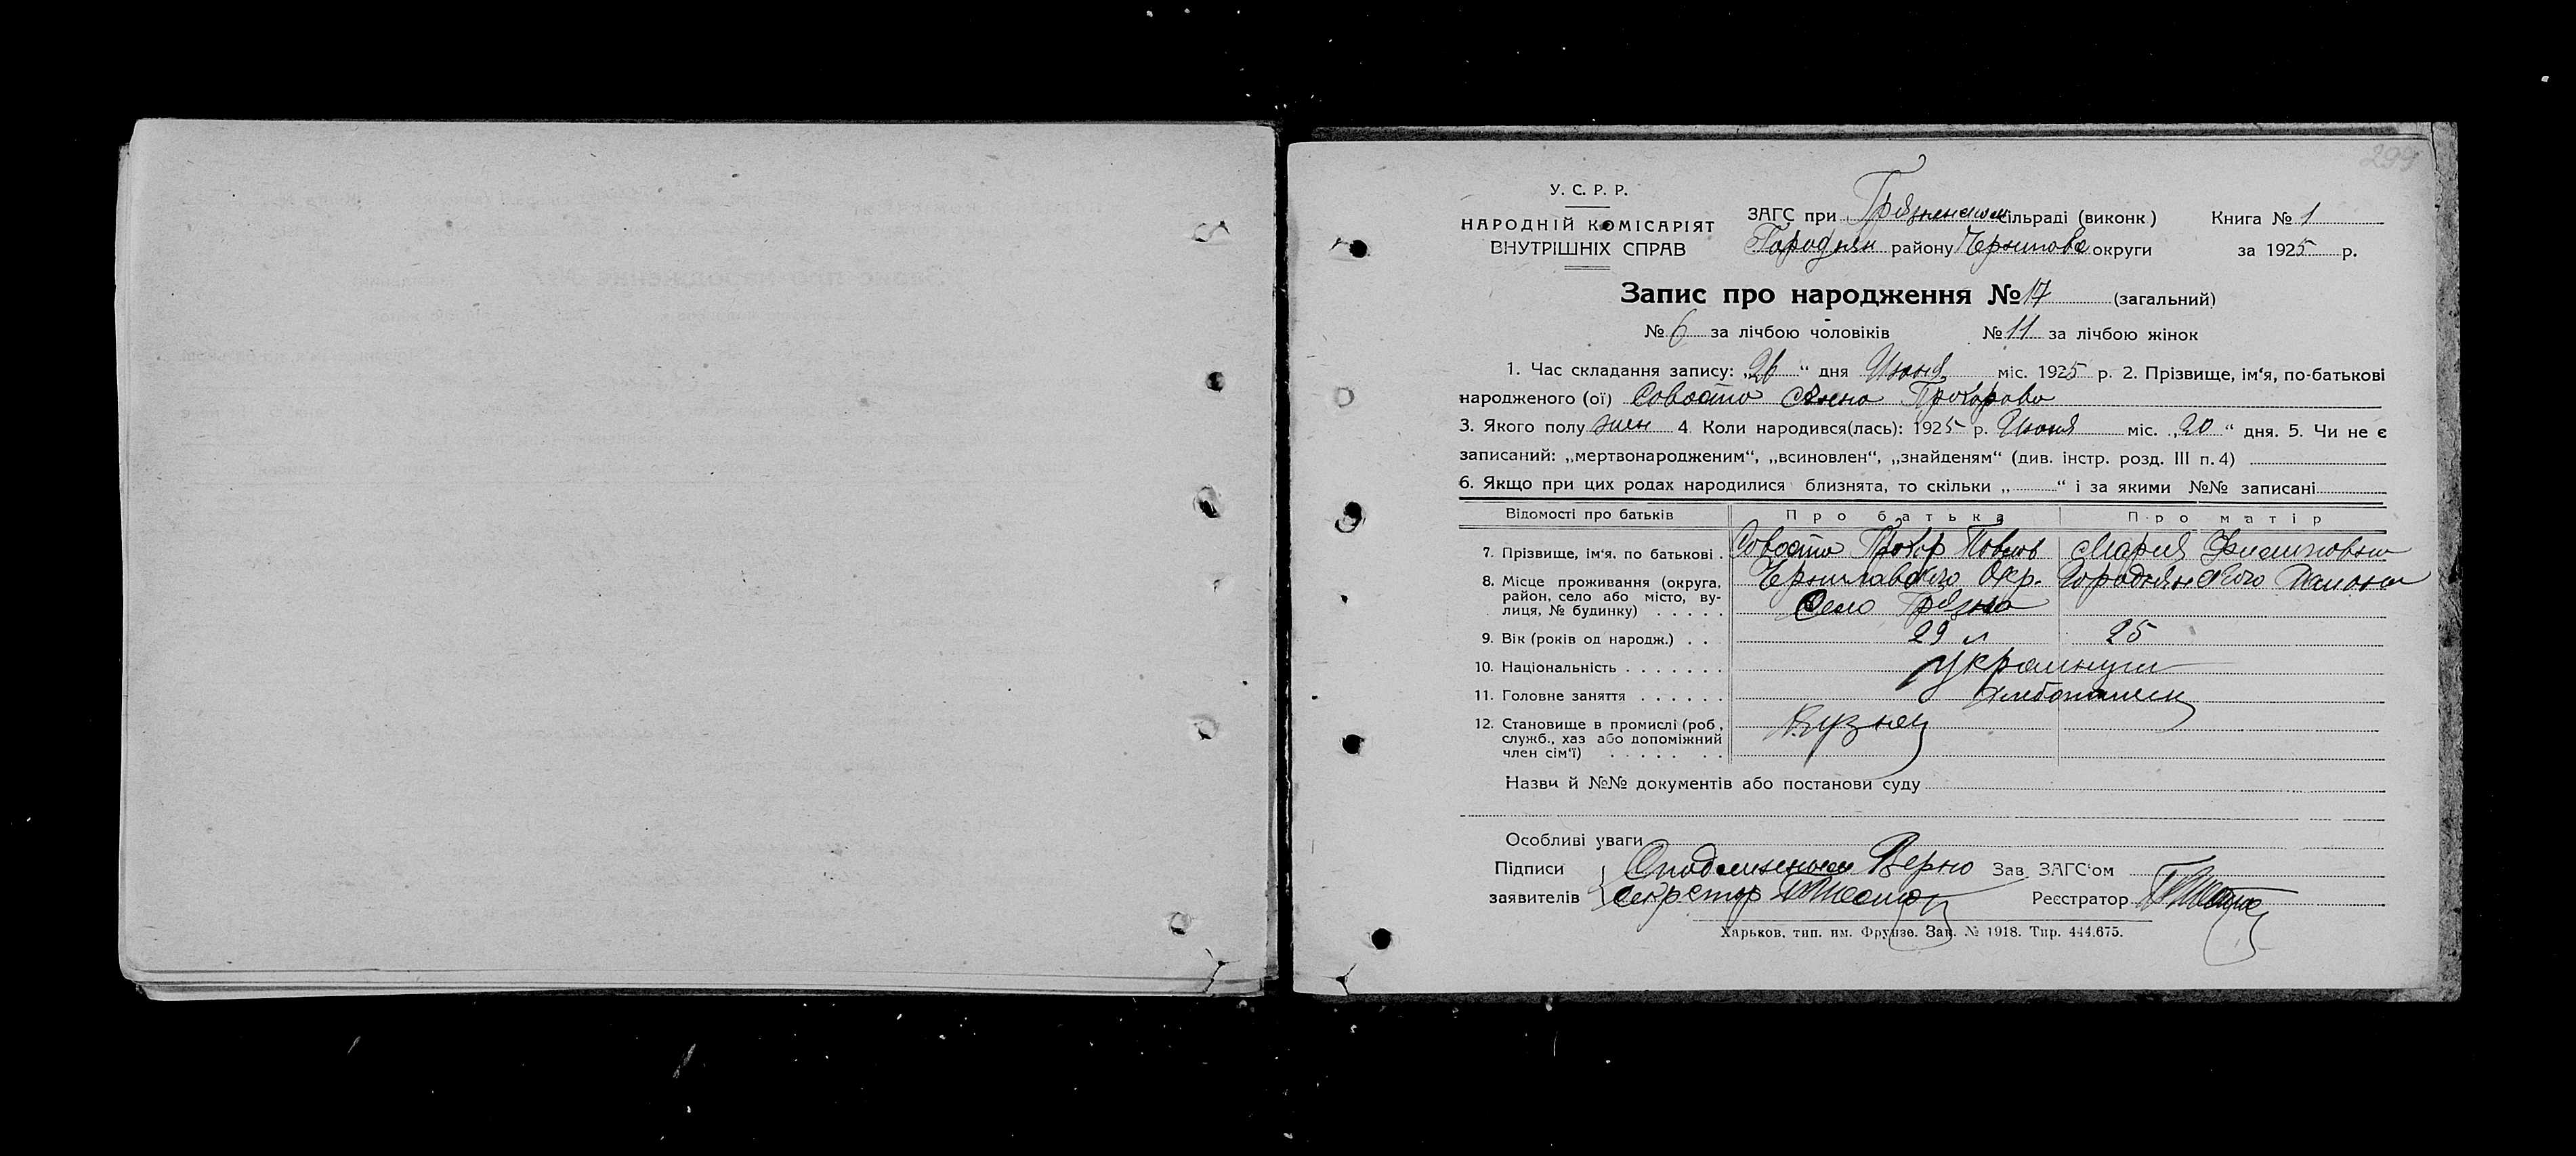 299
У. С. Р. Р.
НАРОДНІЙ КОМІСАРІЯТ
ВНУТРІШНІХ СПРАВ
ЗАГС при Грязненском сільраді (виконк)
Городнян району Чернигово округи
Книга № 1
за 1925 р.
Запис про народження № 17 (загальний)
№ 6 за лічбою чоловіків № 11 за лічбою жінок
1. Час складання запису: „26“ дня Июня міс. 1925 р. 2. Прізвище, ім‘я, по-батькові
народженого (ої) Прохорова
3. Якого полу жен 4. Коли народився(лась): 1925 р. Июня міс. „20“ дня. 5. Чи не є
записаний: „мертвонародженим“, „всиновлен“, „знайденям“ (див. інстр. розд. III п. 4)
6. Якщо при цих родах народилися близнята, то скільки „ “ і за якими №№ записані
Відомості про батьків Про батька Про матір
7. Прізвище, ім‘я, по батькові . Прохор Павлов Мария Филиповна
8. Місце проживання (округа, район, село або місто, вулиця, № будинку) Окр. Городнянского Района
Село Грязна
9. Вік (років од народж.) . . 29 л 25
10. Національність . . . . . . . Украинцы
11. Головне заняття . . . . . . Хлебопашец
12. Становище в промислі (роб., служб., хаз або допоміжний член сім‘ї) Кузнец
Назви й №№ документів або постанови суду
Особливі уваги
Підписи
заявителів
Верно
Секретар
Зав. ЗАГС‘ом
Реєстратор
Харьков. тип. им. Фрунзе. Зак. № 1918. Тир. 444.675.